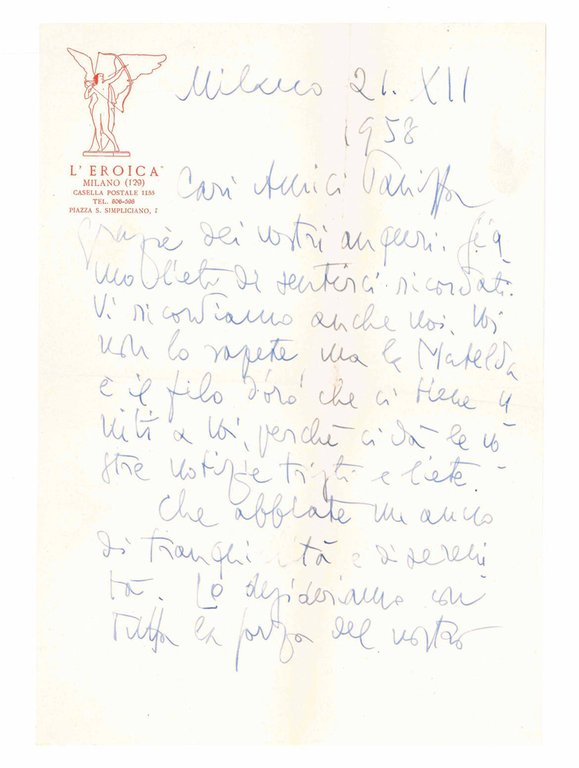 L'EROICA
MILANO (129)
CASELLA POSTALE 1155
TEL. 800-598
PIAZZA S. SIMPLICIANO, 7
Milano 21. XII
1958
Cari Amici
grazie dei vostri auguri. Sia
mo lieti di sentirci ricordati.
Vi ricordiamo anche noi. Voi
non lo sapete ma la Matelda
è il filo d'oro che ci tiene u
niti a voi, perché ci dà le vo
stre notizie tristi e liete.
Che abbiate un anno
di tranquillità e di sereni
tà. Lo desideriamo con
tutta la forza del nostro